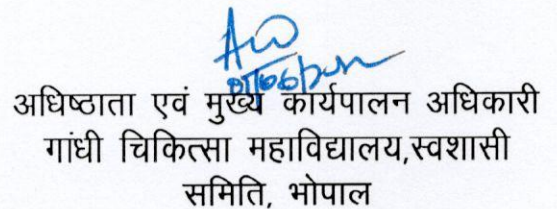 अधिष्ठाता एवं मुख्य कार्यपालन अधिकारी
गांधी चिकित्सा महाविद्यालय,स्वशासी
समिति, भोपाल